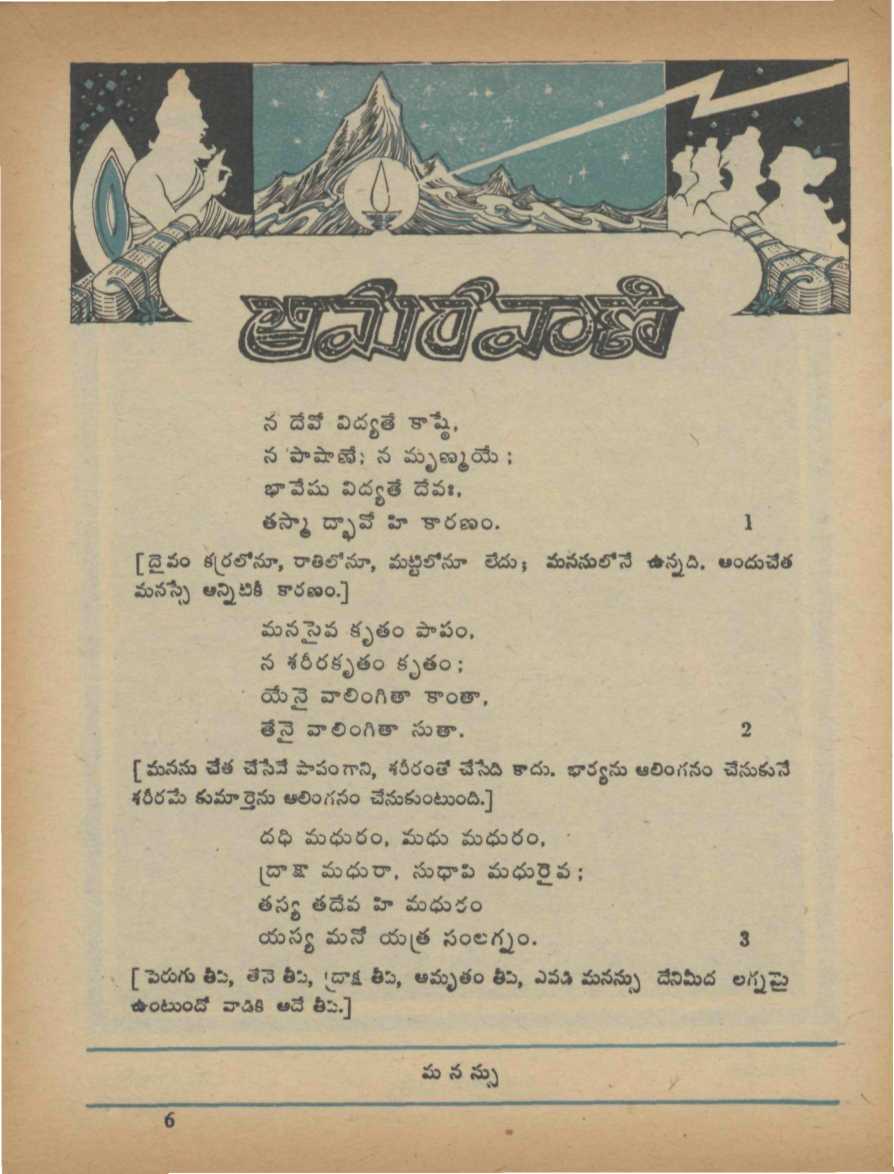 అమరవాణి
న దేవో విద్యతే కాష్ఠే,
న పాషాణే; న మృణ్మయే;
భావేషు విద్యతే దేవః,
తస్మా ద్భావో హి కారణం. 1
[దైవం కర్రలోనూ, రాతిలోనూ, మట్టిలోనూ లేదు; మనసులోనే ఉన్నది. అందుచేత
మనస్సే అన్నిటికీ కారణం.]
మనసైవ కృతం పాపం,
న శరీరకృతం కృతం;
యేనై వాలింగితా కాంతా,
తేనై వాలింగితా సుతా. 2
[మనసు చేత చేసేవే పాపంగాని, శరీరంతో చేసేది కాదు. భార్యను ఆలింగనం చేసుకునే
శరీరమే కుమార్తెను ఆలింగనం చేసుకుంటుంది.]
దధి మధురం, మధు మధురం,
ద్రాక్షా మధురా, సుధాపి మధురైవ;
తస్య తదేవ హి మధురం
యస్య మనో యత్ర సంలగ్నం. 3
[పెరుగు తీపి, తేనె తీపి, ద్రాక్ష తీపి, అమృతం తీపి, ఎవడి మనస్సు దేనిమీద లగ్నమై
ఉంటుందో వాడికి అదే తీపి.]
మ న స్సు
6